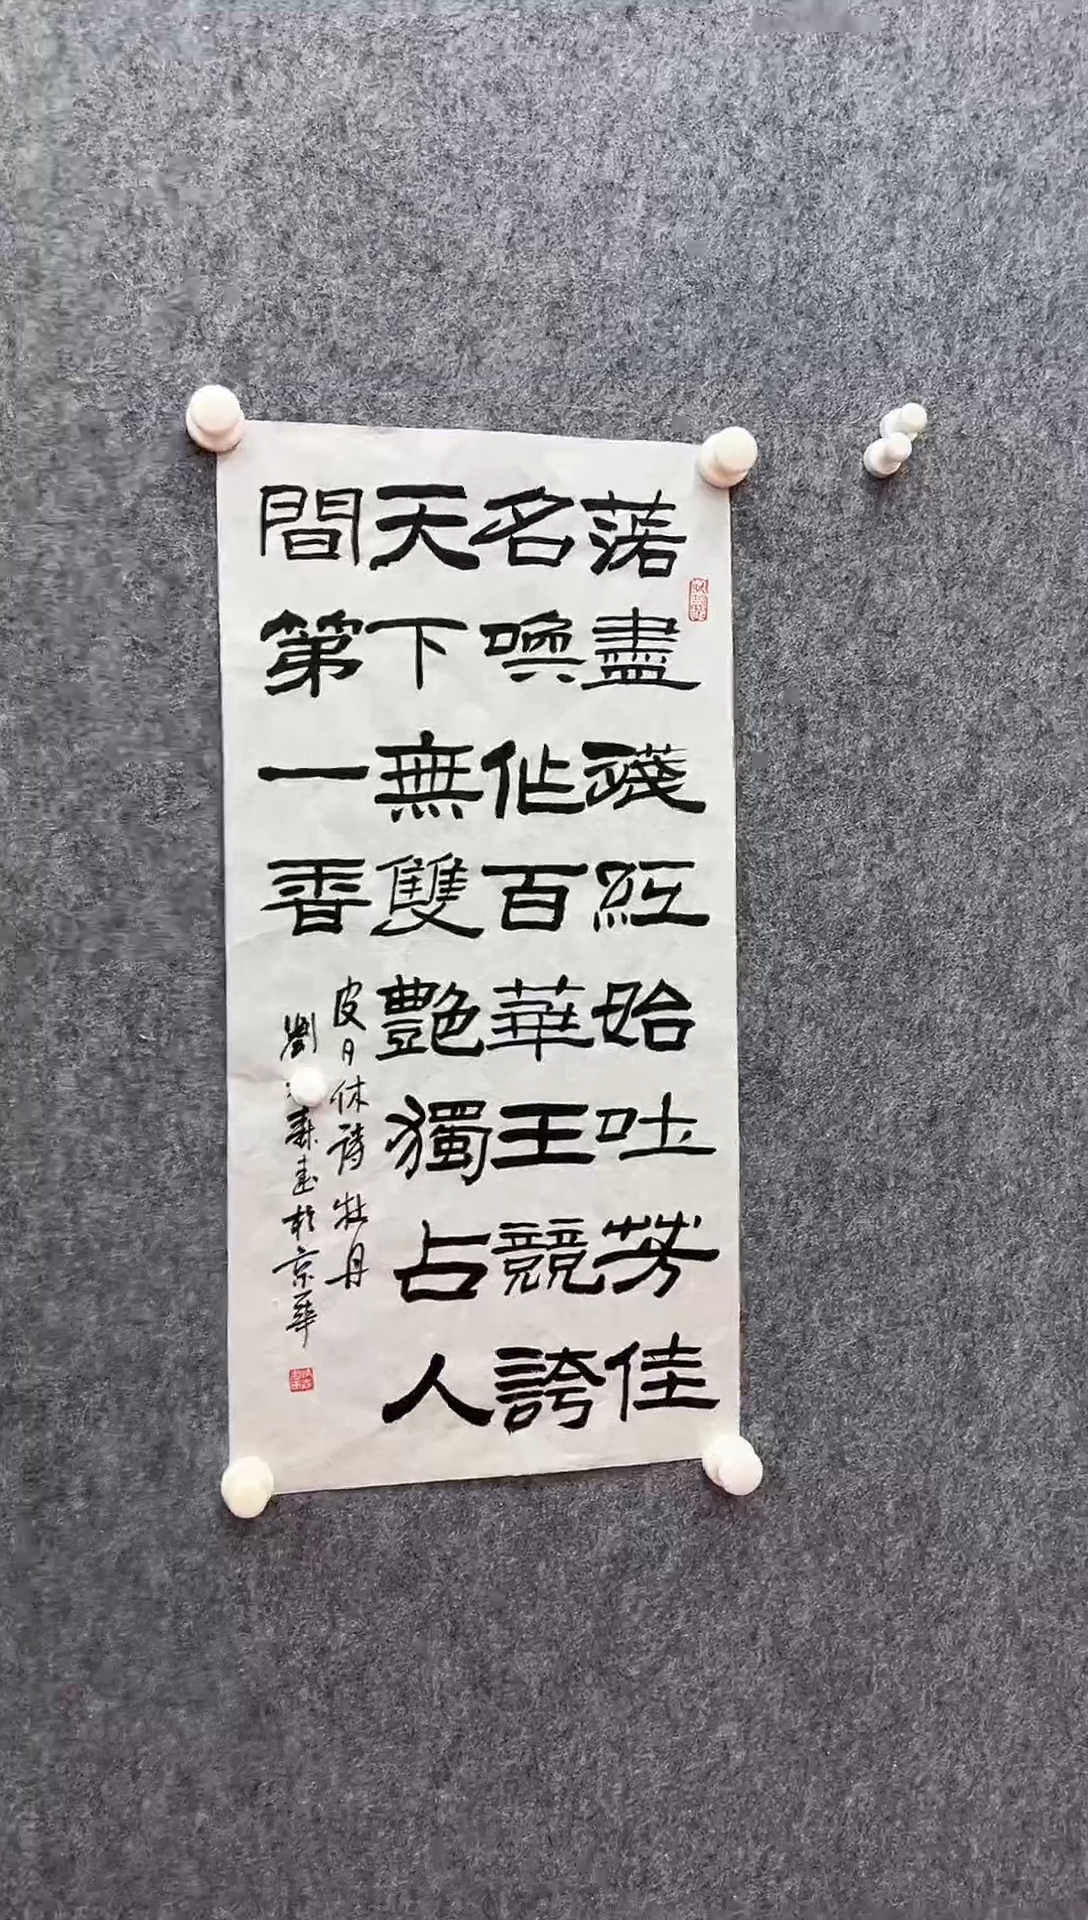 落盡殘紅始吐芳佳
名喚作百華王競誇
天下無雙艷獨占人
間第一香
皮日休詩牡丹
劉 森書於京華